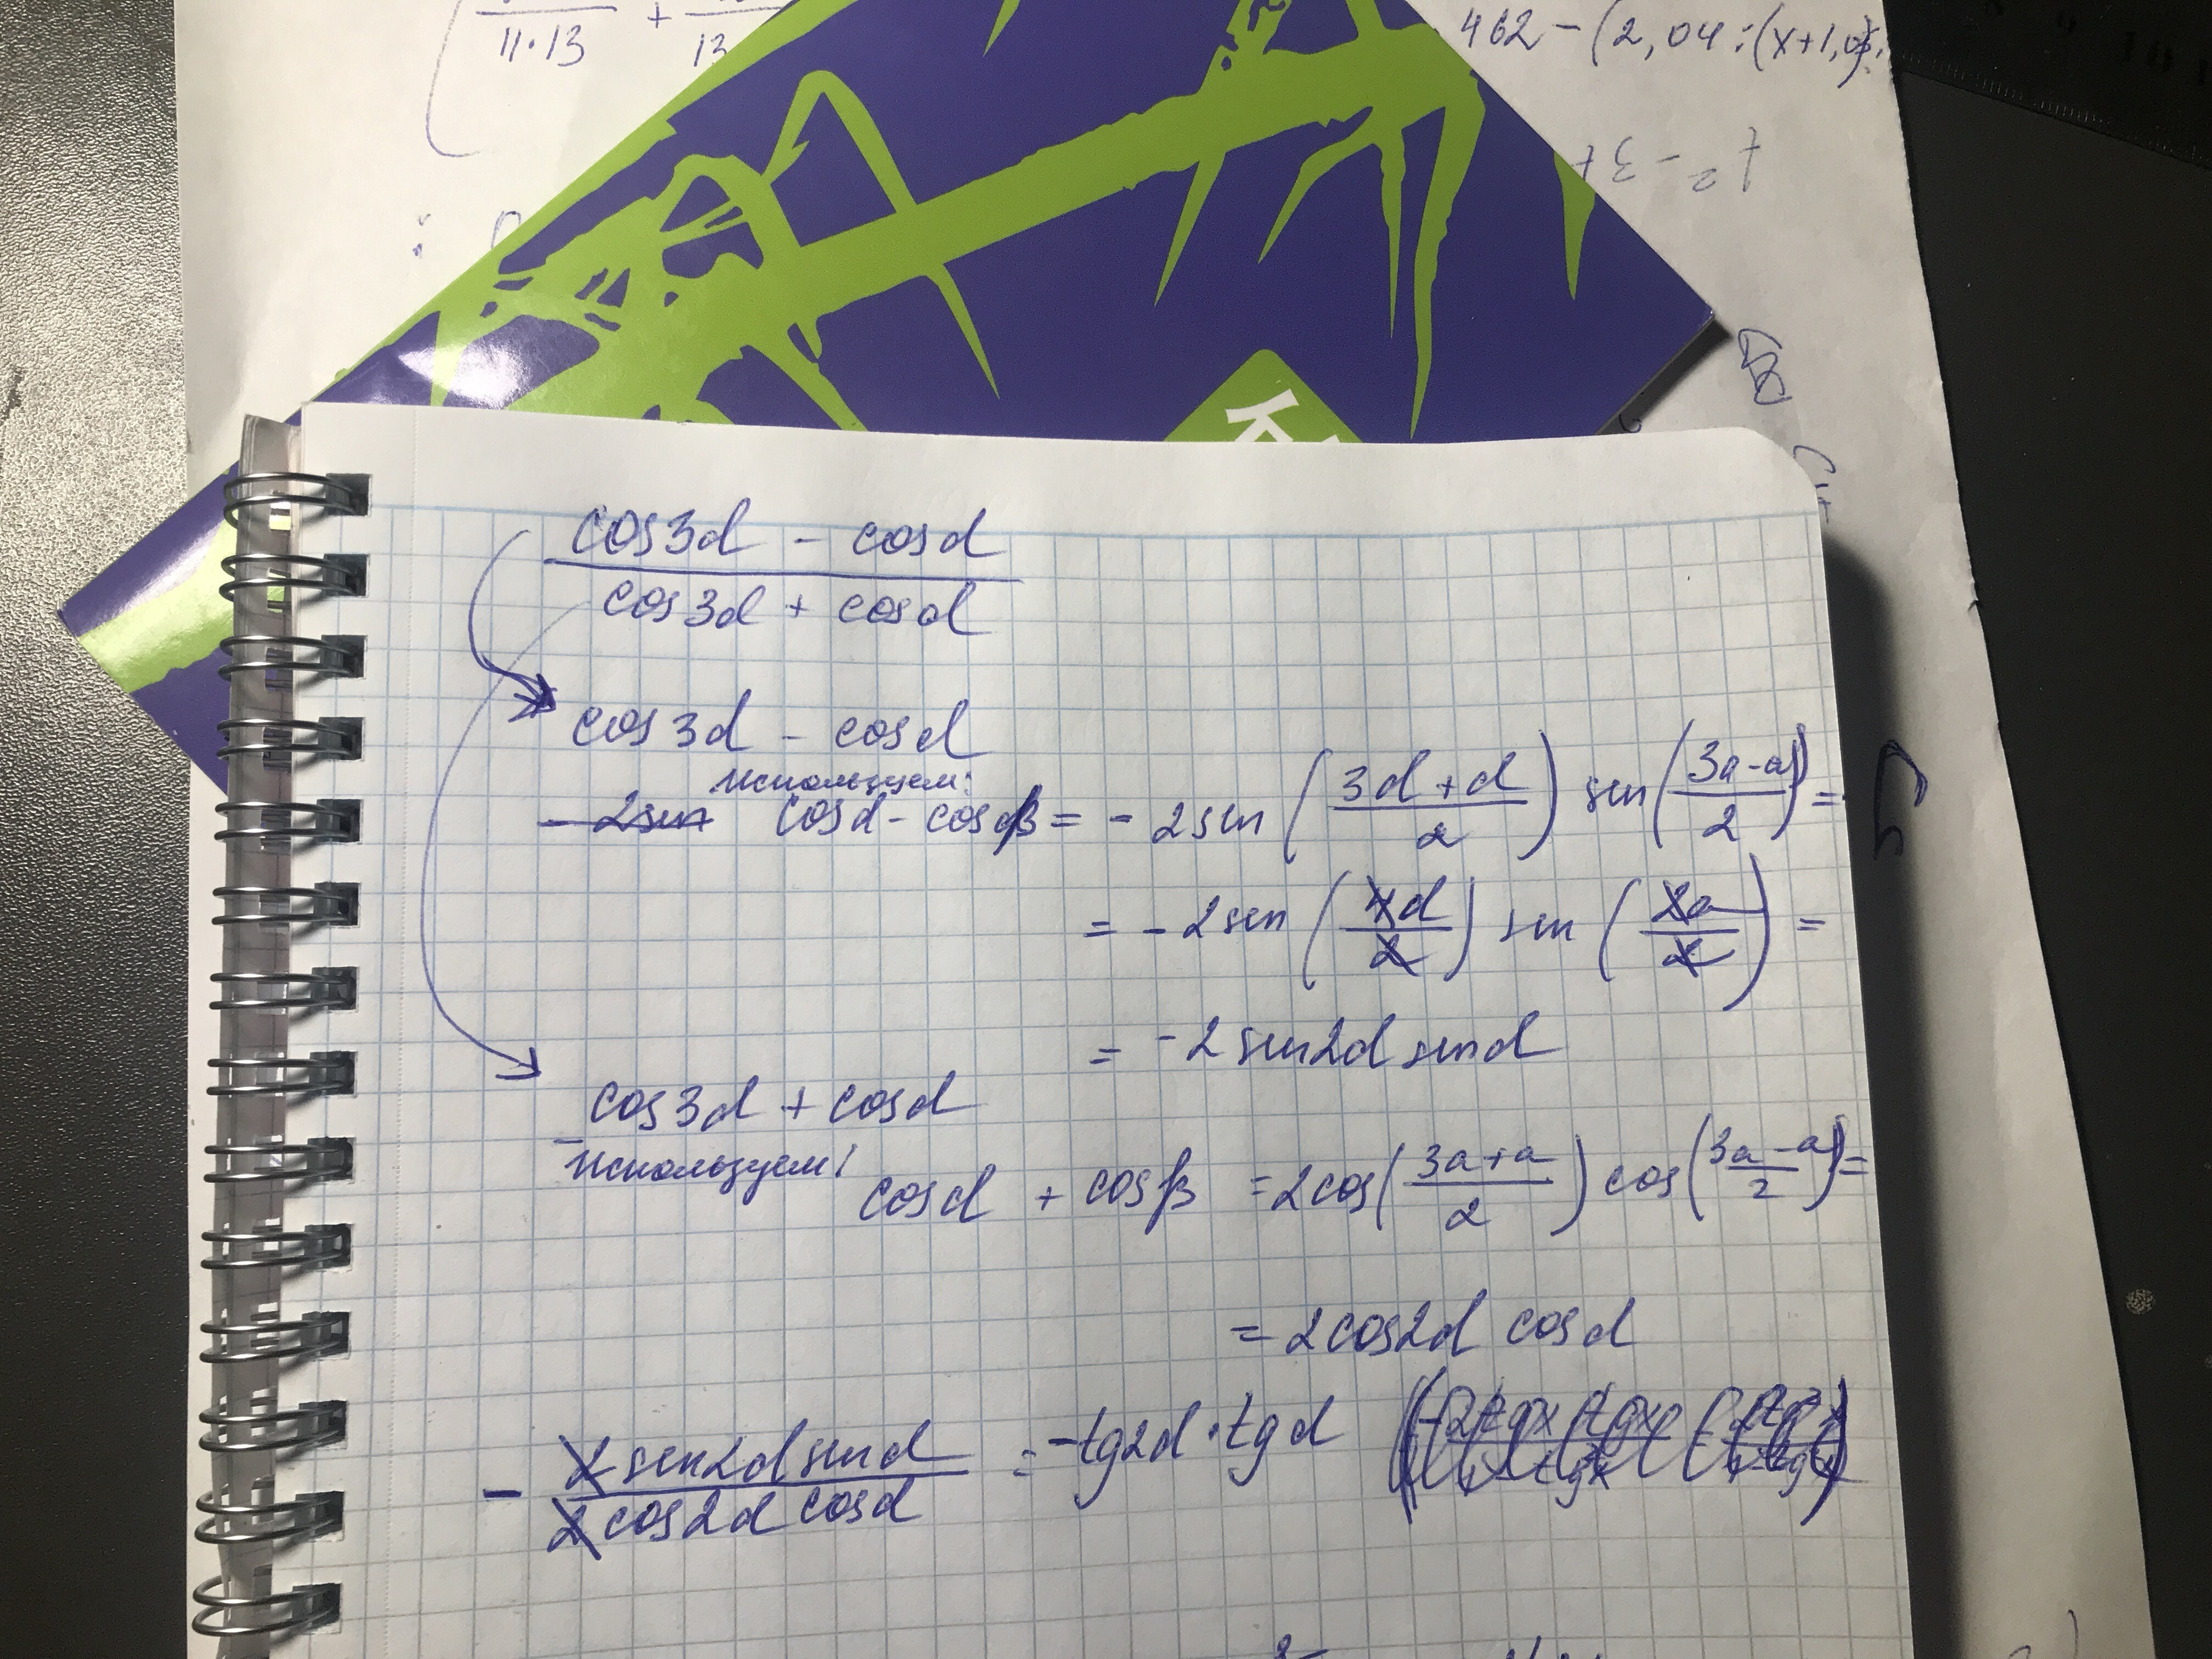 11·13 + 13
462 - (2,04 : (x+1,05)
t² - 3t
cos3α - cosα
cos3α + cosα
cos3α - cosα
Используем:
- 2sin cosα - cosβ = - 2sin (3α + α / 2) sin (3a - a / 2) =
= - 2sin (4α / 2) sin (2a / 2) =
= - 2 sin2α sinα
cos3α + cosα
Используем:
cosα + cosβ = 2cos (3a + a / 2) cos (3a - a / 2) =
= 2cos2α cosα
- 2 sin2α sinα / 2 cos2α cosα = - tg2α · tgα